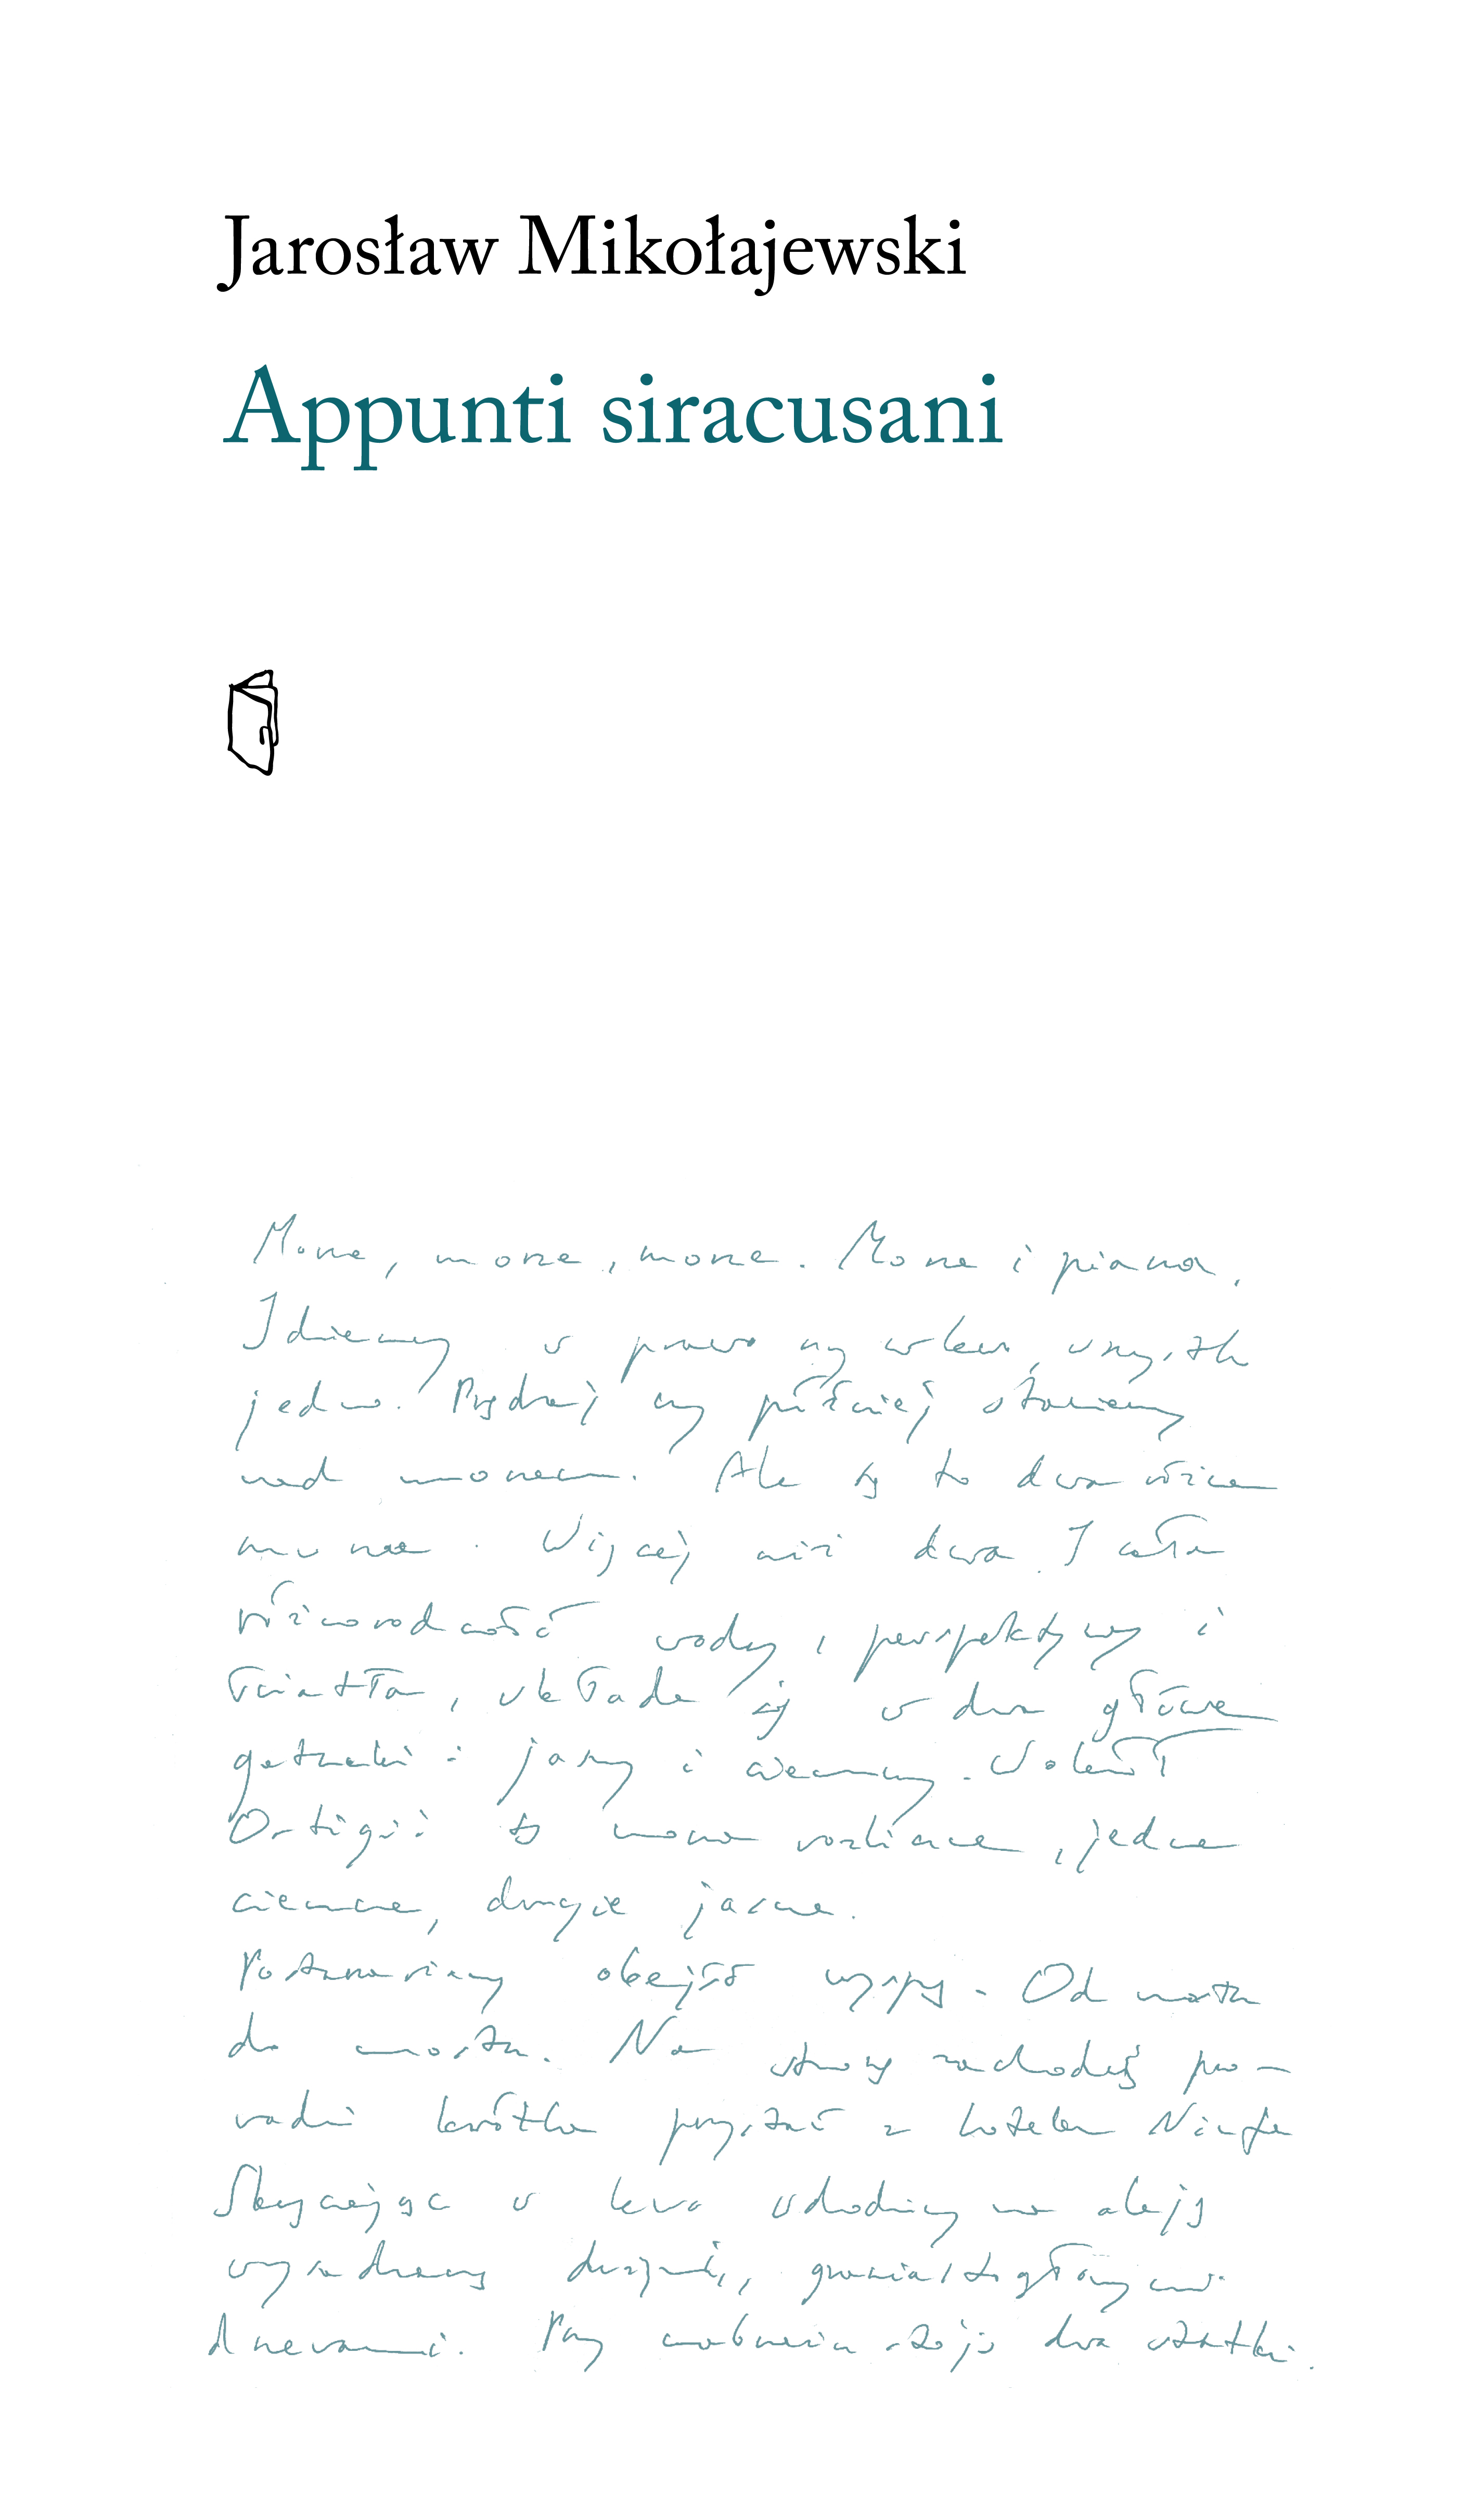 Jarosław Mikołajewski
Appunti siracusani
Morze, morze, morze. Morze i piana.
Idziemy w prawo czy w lewo, wszystko
jedno. Prędzej czy później staniemy
nad morzem. Ale są to dwa różne
morza. Więcej niż dwa. I cała
różnorodność wody, perspektywy i
światła, układa się w dwa główne
gatunki: jasny i ciemny. Wokół
Ortigii są morza rozliczne, jedne
ciemne, drugie jasne.
Postanowiliśmy obejść wyspę. Od mostu
do mostu. Na stary zachodni pro-
wadzi krótka przystań z hotelem
Skręcając w lewo wchodzimy w aleję
wysadzaną dużymi, gwiaździstymi
drzewami. Przy nabrzeżu stoją dwa statki.